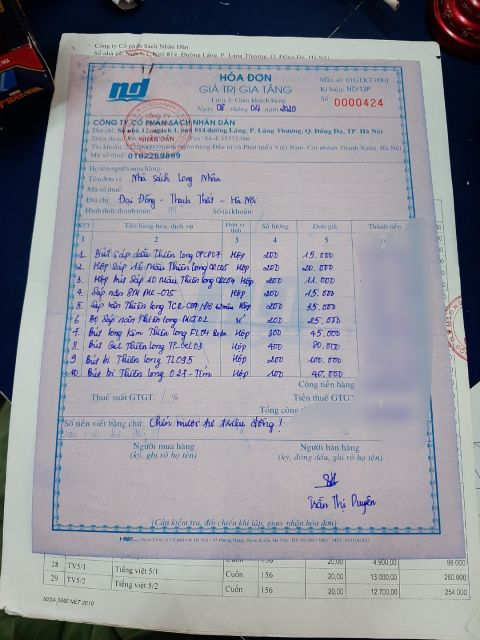 Công ty Cổ phần Sách Nhân Dân
Số nhà 12, ngách 1, ngõ 814, Đường Láng, P. Láng Thượng, Q. Đống Đa, Hà Nội
nd
HÓA ĐƠN
GIÁ TRỊ GIA TĂNG
Liên 2: Giao khách hàng
Ngày 08 tháng 04 năm 2020
Mẫu số: 01GTKT3/001
Ký hiệu: ND/
Số: 0000424
CÔNG TY CỔ PHẦN SÁCH NHÂN DÂN
Địa chỉ: Số nhà 12, ngách 1, ngõ 814 đường Láng, P. Láng Thượng, Q. Đống Đa, TP. Hà Nội
Điện thoại:
Số tài khoản: Ngân hàng Đầu tư và Phát triển Việt Nam, Chi nhánh Thanh Xuân, Hà Nội
Mã số thuế: 0102269899
Họ tên người mua hàng:
Tên đơn vị: Nhà sách Long Nhân
Mã số thuế:
Địa chỉ: Đại Đồng - Thạch Thất - Hà Nội
Hình thức thanh toán: Số tài khoản:
STT Tên hàng hóa, dịch vụ Đơn vị tính Số lượng Thành tiền
1 2 3 4 5
1. Bút sáp dầu Thiên long OPCP07 Hộp 200 15.000
2. Hộp Sáp 16 màu Thiên long CRC05 Hộp 200 20.000
3. Hộp Bút Sáp 10 màu Thiên long CRC04 Hộp 200 11.000
4. Sáp nặn Hộp 200 15.000
5. Sáp nặn Thiên long màu Hộp 200 35.000
6. Bộ Sáp nặn Thiên long 200 25.000
7. Bút lông Kim Thiên long FL04 Beta Hộp 300 45.000
8. Bút Gel Thiên long Hộp 400 80.000
9. Bút bi Thiên long TL095 Hộp 200 100.000
10. Bút bi Thiên long 027 - Tím Hộp 100 40.000
Cộng tiền hàng
Thuế suất GTGT: / % Tiền thuế GTG
Tổng cộng
Số tiền viết bằng chữ: Chín mươi tư triệu đồng!
Người mua hàng Người bán hàng
(ký, ghi rõ họ tên) (ký, đóng dấu, ghi rõ họ tên)
Trần Thị Duyên
(Cần kiểm tra, đối chiếu khi lập, giao, nhận hóa đơn)
28 TV5/1 Tiếng việt 5/1 Cuốn 156 20,00 4.900,00 98.000
29 TV5/2 Tiếng việt 5/2 Cuốn 156 20,00 13.000,00 260.000
156 20,00 12.700,00 254.000
MISA SME.NET 2019